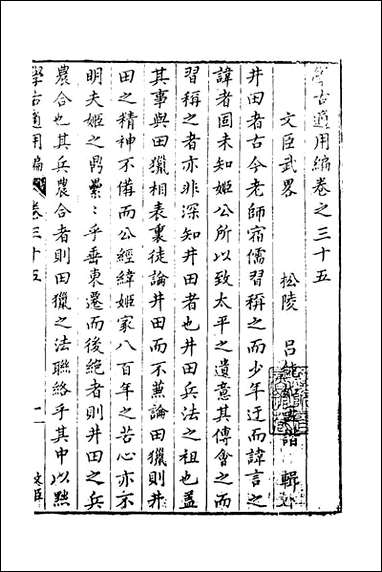 學古適用編卷之三十五
文臣武畧
松陵 呂純如 輯
井田者古今老師宿儒習稱之而少年迂而諱言之
諱者固未知姬公所以致太平之遺意其傅會之而
習稱之者亦非深知井田者也井田兵法之祖也蓋
其事與田獵相表裏徒論井田而不兼論田獵則井
田之精神不備而公經緯姬家八百年之苦心亦不
明夫姬之鼎纍纍乎垂東遷而後絶者則井田之兵
農合也其兵農合者則田獵之法聯絡乎其中以黙
學古適用編 卷三十五
一
文臣